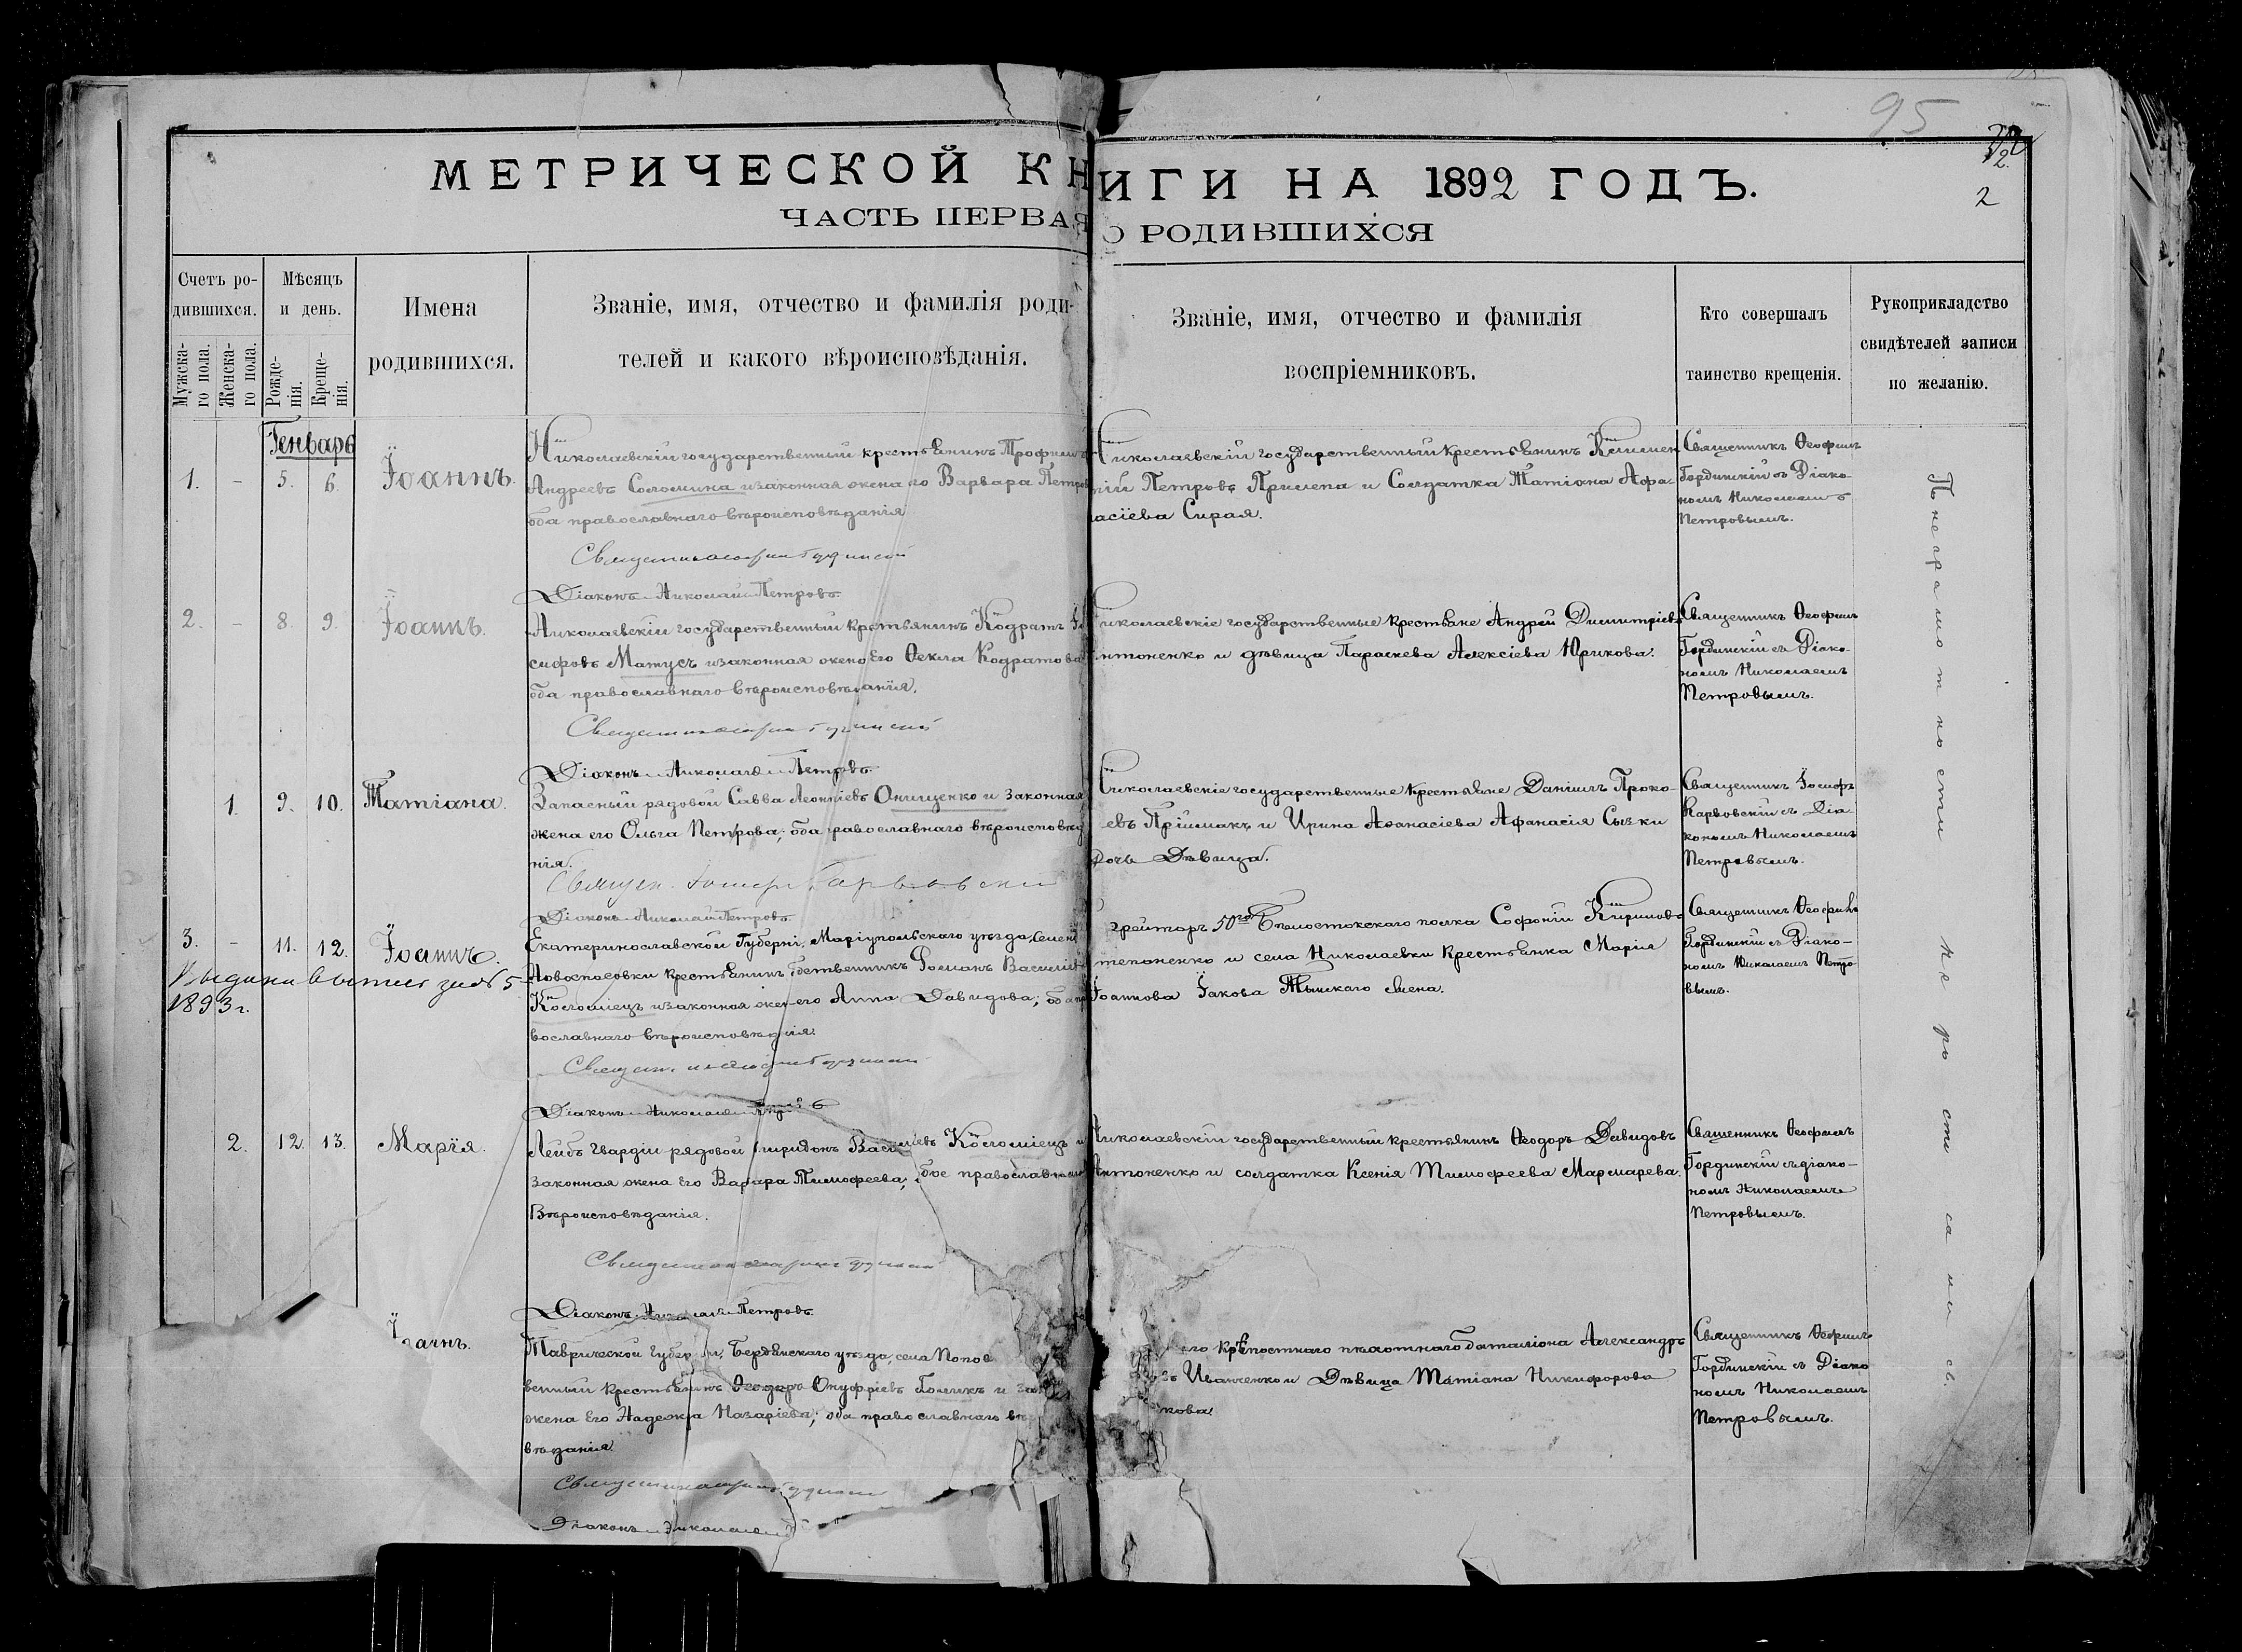 95
2
2
МЕТРИЧЕСКОЙ КНИГИ НА 1892 ГОДЪ.
ЧАСТЬ ПЕРВАЯ О РОДИВШИХСЯ
Счетъ ро-
дившихся.
Мужска-
го пола.
Женска-
го пола.
Мѣсяцъ
и день.
Рожде-
нія.
Креще-
нія.
Имена
родившихся.
Званіе, имя, отчество и фамилія роди-
телей и какого вѣроисповѣданія.
Званіе, имя, отчество и фамилія
воспріемниковъ.
Кто совершалъ
таинство крещенія.
Рукоприкладство
свидѣтелей записи
по желанію.
Генварь
1. - 5. 6. Іоаннъ.
Николаевскій государственный крестьянинъ Трофимъ
Андреевъ Соломина и законная жена его Варвара Петров
оба православнаго вѣроисповѣданія
Діаконъ Николай Петровъ
Николаевскій государственный крестьянинъ Климен
тій Петровъ Прилепа и Солдатка Татіана Афа-
насіева Сирая.
Священникъ Ѳеофилъ
Гординскій съ Діако-
номъ Николаемъ
Петровымъ.
2. - 8. 9. Іоаннъ.
Николаевскій государственный крестьянинъ Кодратъ Іо
сифовъ Матусъ и законная жена Его Ѳекла Кодратова
оба православнаго вѣроисповѣданія.
Діаконъ Николай Петровъ
Николаевскіе государственные крестьяне Андрей Димитріевъ
Антоненко и дѣвица Параскева Алексіева Юрикова.
Священникъ Ѳеофилъ
Гординскій съ Діако-
номъ Николаемъ
Петровымъ.
1. 9. 10. Татіана.
Запасный рядовой Савва Леонтіевъ Онищенко и Законная
жена его Ольга Петрова; оба православнаго вѣроисповѣда
нія.
Діаконъ Николай Петровъ
Николаевскіе государственные крестьяне Даніилъ Проко-
евъ Пріймакъ и Ирина Аѳанасіева Афанасія Сызки
дочь Дѣвица.
Священникъ Іосифъ
Карвовскій съ Діа-
кономъ Николаемъ
Петровымъ.
3. - 11. 12. Іоаннъ.
1893 г.
Екатеринославской Губерніи, Маріупольскаго уѣзда, Селенія
Новоспасовки крестьянинъ собственникъ Романъ Василіевъ
Косгоміецъ и законная жена его Анна Давидова; оба пра
вославнаго вѣроисповѣданія.
Діаконъ Николай Петровъ
ефрейторъ 50го Бѣлостокскаго полка Софоній Кириловъ
Степаненко и села Николаевки Крестьянка Марія
Іоаннова Іакова жена.
Священникъ Ѳеофилъ
Гординскій съ Діако-
номъ Николаемъ Петро-
вымъ.
2. 12. 13. Марія.
Лейбъ Гвардіи рядовой Спиридонъ Василіевъ Косгоміецъ и
законная жена Его Варвара Тимофеева; обое православнаго
Вѣроисповѣданія.
Діаконъ Николай Петровъ
Николаевскій государственный крестьянинъ Ѳеодоръ Давидовъ
Антоненко и солдатка Ксенія Тимофеева Мармарева.
Священникъ Ѳеофилъ
Гординскій съ діако-
номъ Николаемъ
Петровымъ.
Іоаннъ.
Таврической Губерніи, Бердянскаго уѣзда, села Попов
венный крестьянинъ Ѳеодоръ Онуфріевъ Голикъ и зак
жена Его Надежда Назаріева; оба православнаго вѣ
вѣданія.
Діаконъ Николай
го крѣпостнаго пѣхотнаго баталіона Александръ
въ Иванченко и Дѣвица Татіана Никифорова
нкова.
Священникъ Ѳеофилъ
Гординскій съ Діако
номъ Николаемъ
Петровымъ.
По неграмотности